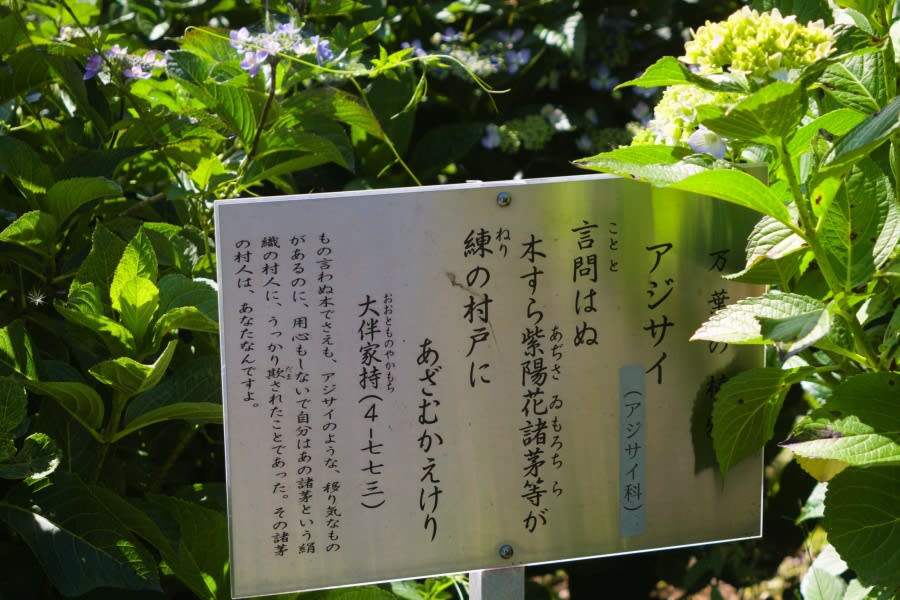 万葉の植物
アジサイ
(アジサイ科)
言問はぬ
こと と
木すら紫陽花諸茅等が
あぢさ ゐもろちら
練の村戸に
ねり
あざむかえけり
大伴家持(4-七七三)
おおとものやかもち
もの言わぬ木でさえも、アジサイのような、移り気なもの
があるのに、用心もしないで自分はあの諸茅という絹
織の村人に、うっかり欺されたことであった。その諸茅
だま
の村人は、あなたなんですよ。